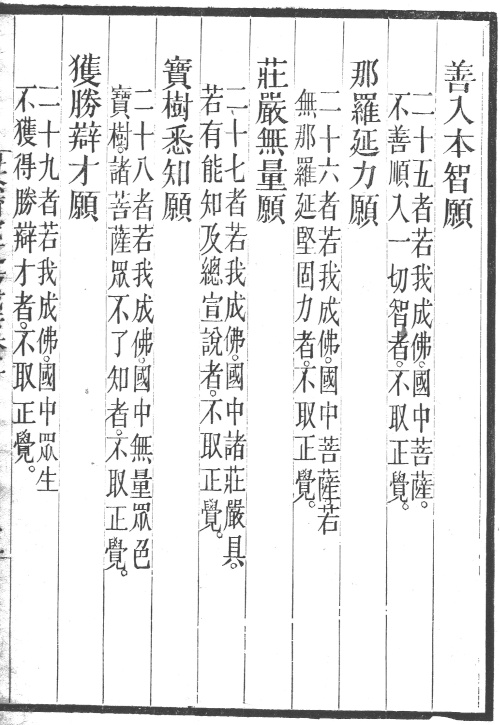 善入本智願
二十五者若我成佛。國中菩薩。
不善順入一切智者。不取正覺。
那羅延力願
二十六者若我成佛。國中菩薩若
無那羅延堅固力者。不取正覺。
莊嚴無量願
二十七者若我成佛。國中諸莊嚴具。
若有能知及總宣說者。不取正覺。
寶樹悉知願
二十八者若我成佛。國中無量眾色
寶樹。諸菩薩眾不了知者。不取正覺。
獲勝辯才願
二十九者若我成佛。國中眾生
不獲得勝辯才者。不取正覺。